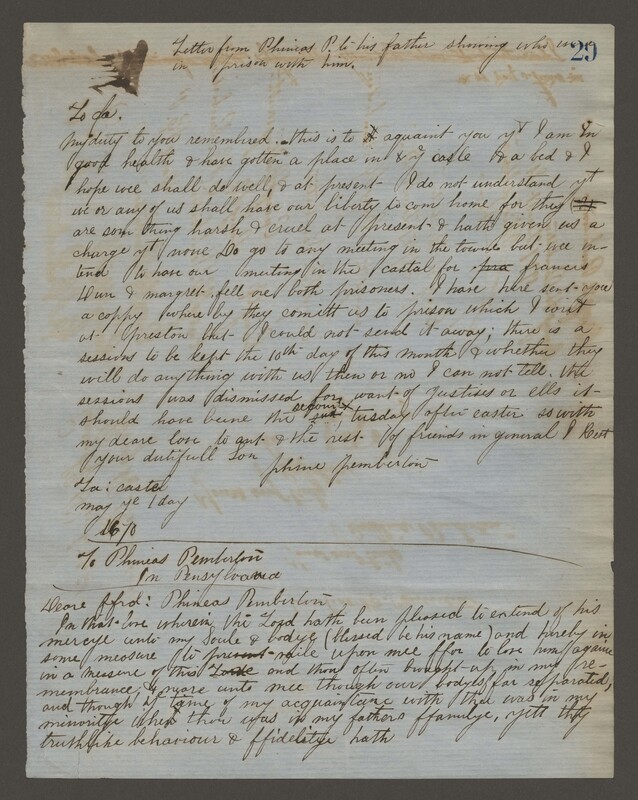 29
Letter from Phineas P. to his father showing who was
in prison with him.
To fa.
My duty to you remembered. this is to aquaint you yt I am in
good health & have gotten a place in ye casle & a bed & I
hope wee shall do well, & at present I do not understand yt
us or any of us shall have our liberty to com home for they
are som thing harsh & cruel at present & hath given us a
charge yt none Do go to any meeting in the towne but wee in-
tend to have our meeting in the castal for francis
& margret fell are both prisoners. I have here sent you
a coppy where by they comitt us to prison which I writ
at Preston but I could not send it away; there is a
sessions to be kept the 10th day of this month & whether they
will do anything with us then or no I can not tell. the
sessions was dismissed for want of Justises or ells it
should have beene the second tusday after easter so with
my deare love to ant & the rest of friends in general I Rest
your dutifull Son
phine pemberton
La: castel
may ye 1 day
1670
To Phineas Pemberton
In Pensylvania
Deare ffrd: Phineas Pemberton
In that love wherein the Lord hath been pleased to extend of his
mercye unto my Soule & bodye (blessed be his name) and hereby in
some measure to prevaile upon mee ffor to love him againe
in a measure of this and thou often brought up in my re-
membrance, & more unto mee though our bodyes far separated,
and though ye time of my acquantance with thee was in my
minoritye when thou was in my fathers ffamilye, yett thy
truthlike behaviour & ffidelitye hath